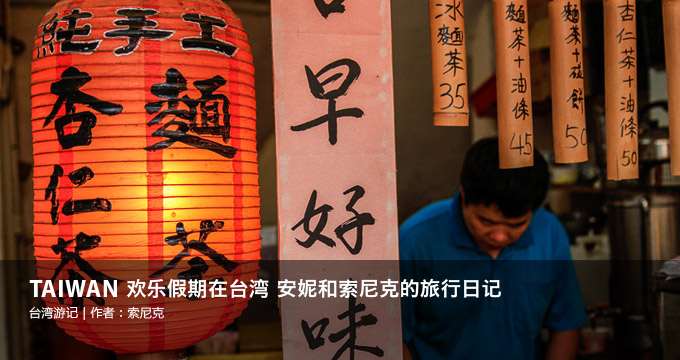 純手工
麵茶
杏仁茶
早好味
冰麵茶 35
麵茶+油條 45
麵茶+ 餅 50
杏仁茶+油條 50
TAIWAN 欢乐假期在台湾 安妮和索尼克的旅行日记
台湾游记 | 作者：索尼克